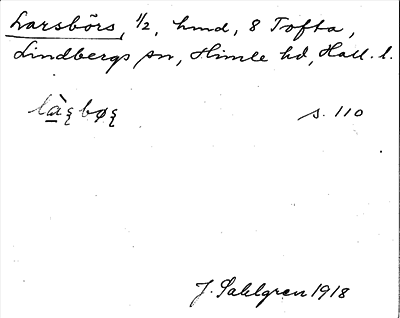 Larsbörs, 1/2, hmd, 8 Tofta,
Lindbergs sn, Himle hd, Hall. l.
s. 110
J. Sahlgren 1918